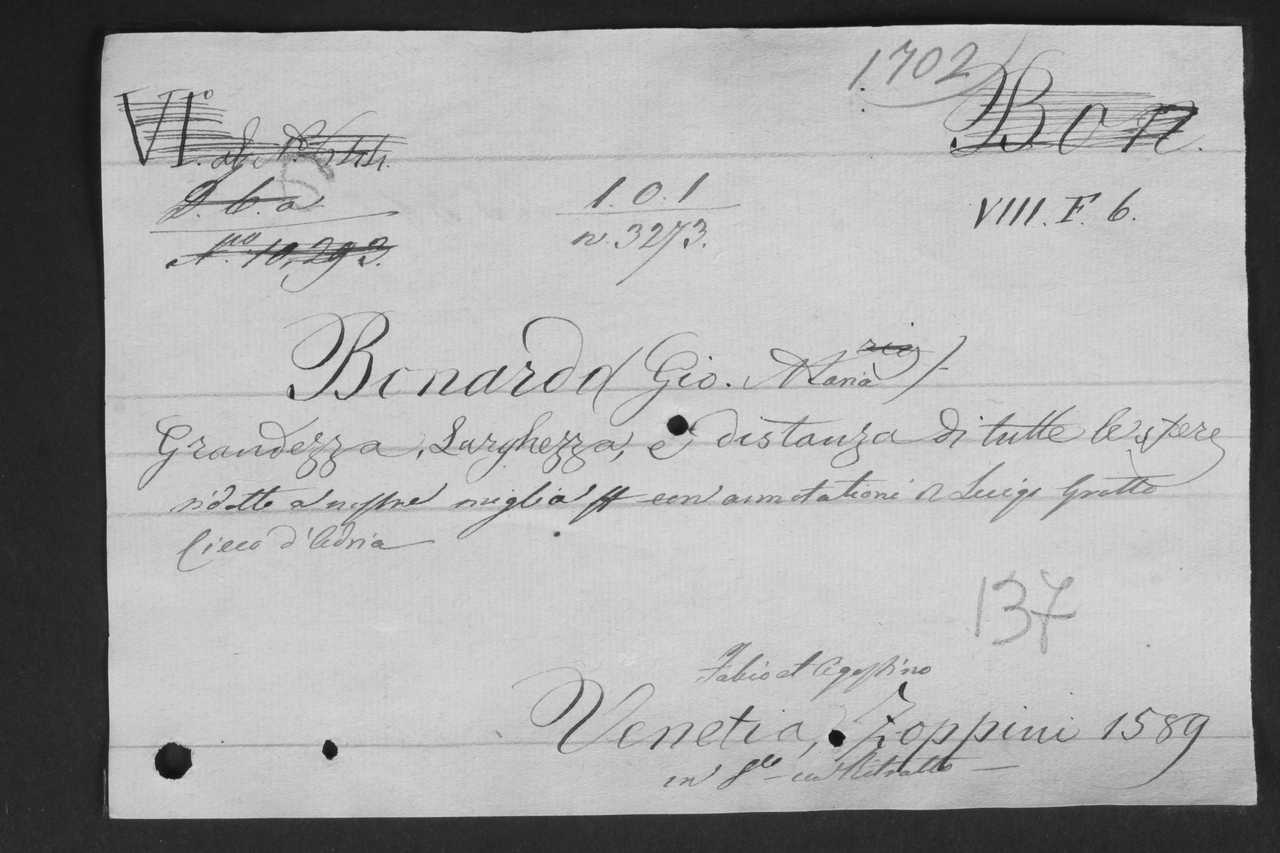 1702
VI.º
Bon.
D. 6. a
1. 0. 1
VIII. F. 6.
N.ro 10,293.
n. 3273.
Bonardo (Gio. Maria)
Grandezza, Larghezza, e distanza di tutte le sfere
ridotte a nostre miglia con annotationi di Luigi Grotto
Cieco d'Adria
137
Fabio et Agostino
Venetia, Zoppini 1589
in 8.vo con Ritratto